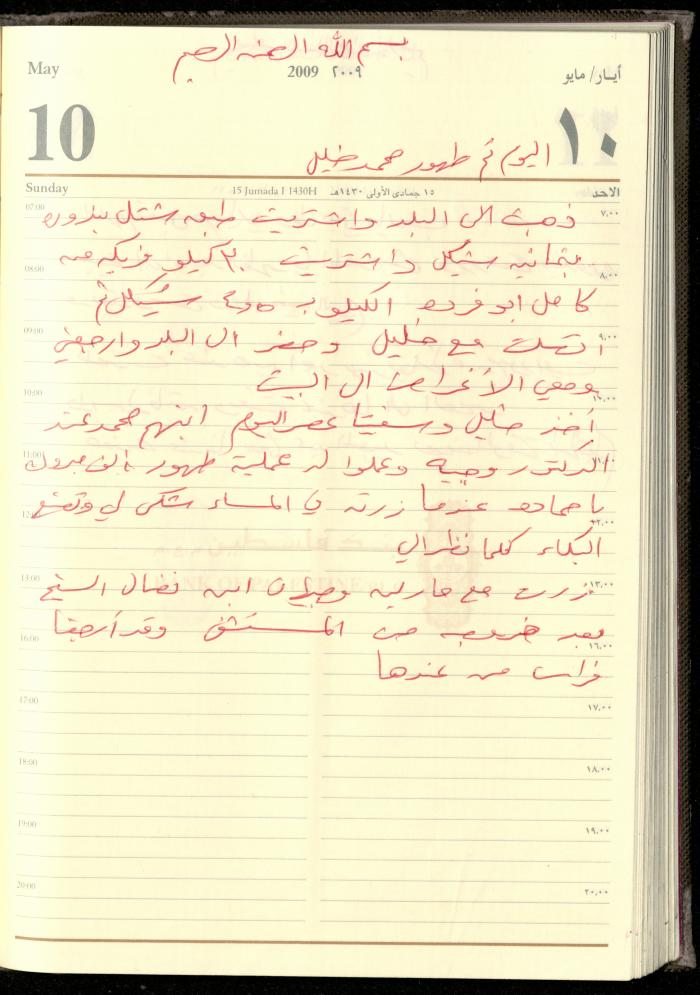 بسم الله الرحمن الرحيم
May
2009 ٢٠٠٩
أيـار/ مايو
10
١٠
اليوم تم طهور محمد خليل
Sunday
15 Jumada I 1430H
١٥ جمادى الأولى ١٤٣٠هـ
الأحد
07:00 ذهبت الى البلد واشتريت طبعه شتل بندوره ٧,٠٠
بثمانيه شيكل واشتريت ٢٠ كيلو فريكه من
08:00 ٨,٠٠
كامل ابو فرده الكيلو بـ ٤٫٥ شيكل ثم
09:00 ٩,٠٠
اتصلت مع خليل وحضر الى البلد وارجعني
ومعي الأغراض الى البيت
10:00 ١٠,٠٠
أخذ خليل وسفيتا عصر اليوم ابنهم محمد عند
11:00 ١١,٠٠
الدكتور وجيه وعملوا له عملية طهور الف مبروك
يا حماده عندما زرته في المساء شكى لي وتصنع
12:00 ١٢,٠٠
البكاء كلما نظر الي
13:00 ١٣,٠٠
زرت مع مارلين وجيهان ابن نضال الشيخ
بعد خروجه من المستشفى وقد أحضرنا
16:00 ١٦,٠٠
فراس من عندها
17:00 ١٧,٠٠
18:00 ١٨,٠٠
19:00 ١٩,٠٠
20:00 ٢٠,٠٠